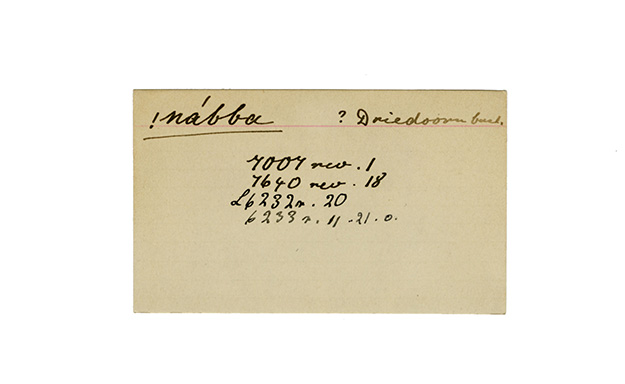 !nábba ? Driedoorn bush.
7007 rev. 1
7640 rev. 18
L6232r. 20
6233 r. 11-21. o.